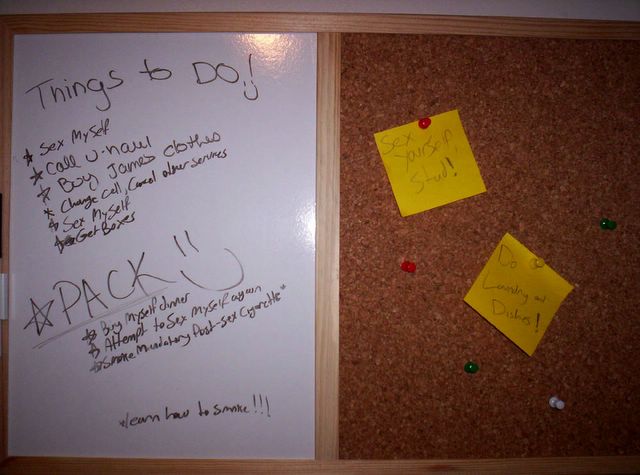 Things to DO!
* Sex Myself
* Call U-haul
* Buy James clothes
* Change cell, Cancel other services
* Sex Myself
* Get Boxes
* PACK
* Buy Myself dinner
* Attempt to Sex Myself again
* Smoke Mandatory Post-Sex Cigarette*
*learn how to smoke!!!
Sex
Yourself,
Stud!
Do
Laundry and
Dishes!